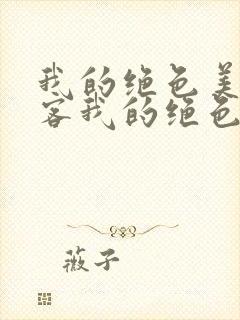 我的绝色美
客我的绝色
薇子